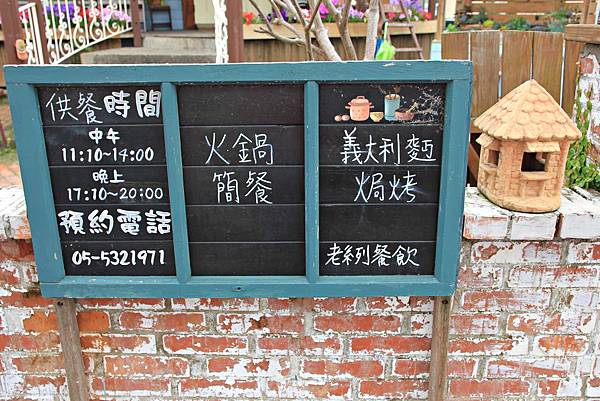 供餐時間
中午
11:10~14:00
晚上
17:10~20:00
預約電話
05-5321971
火鍋
簡餐
義大利麵
焗烤
老系列餐飲